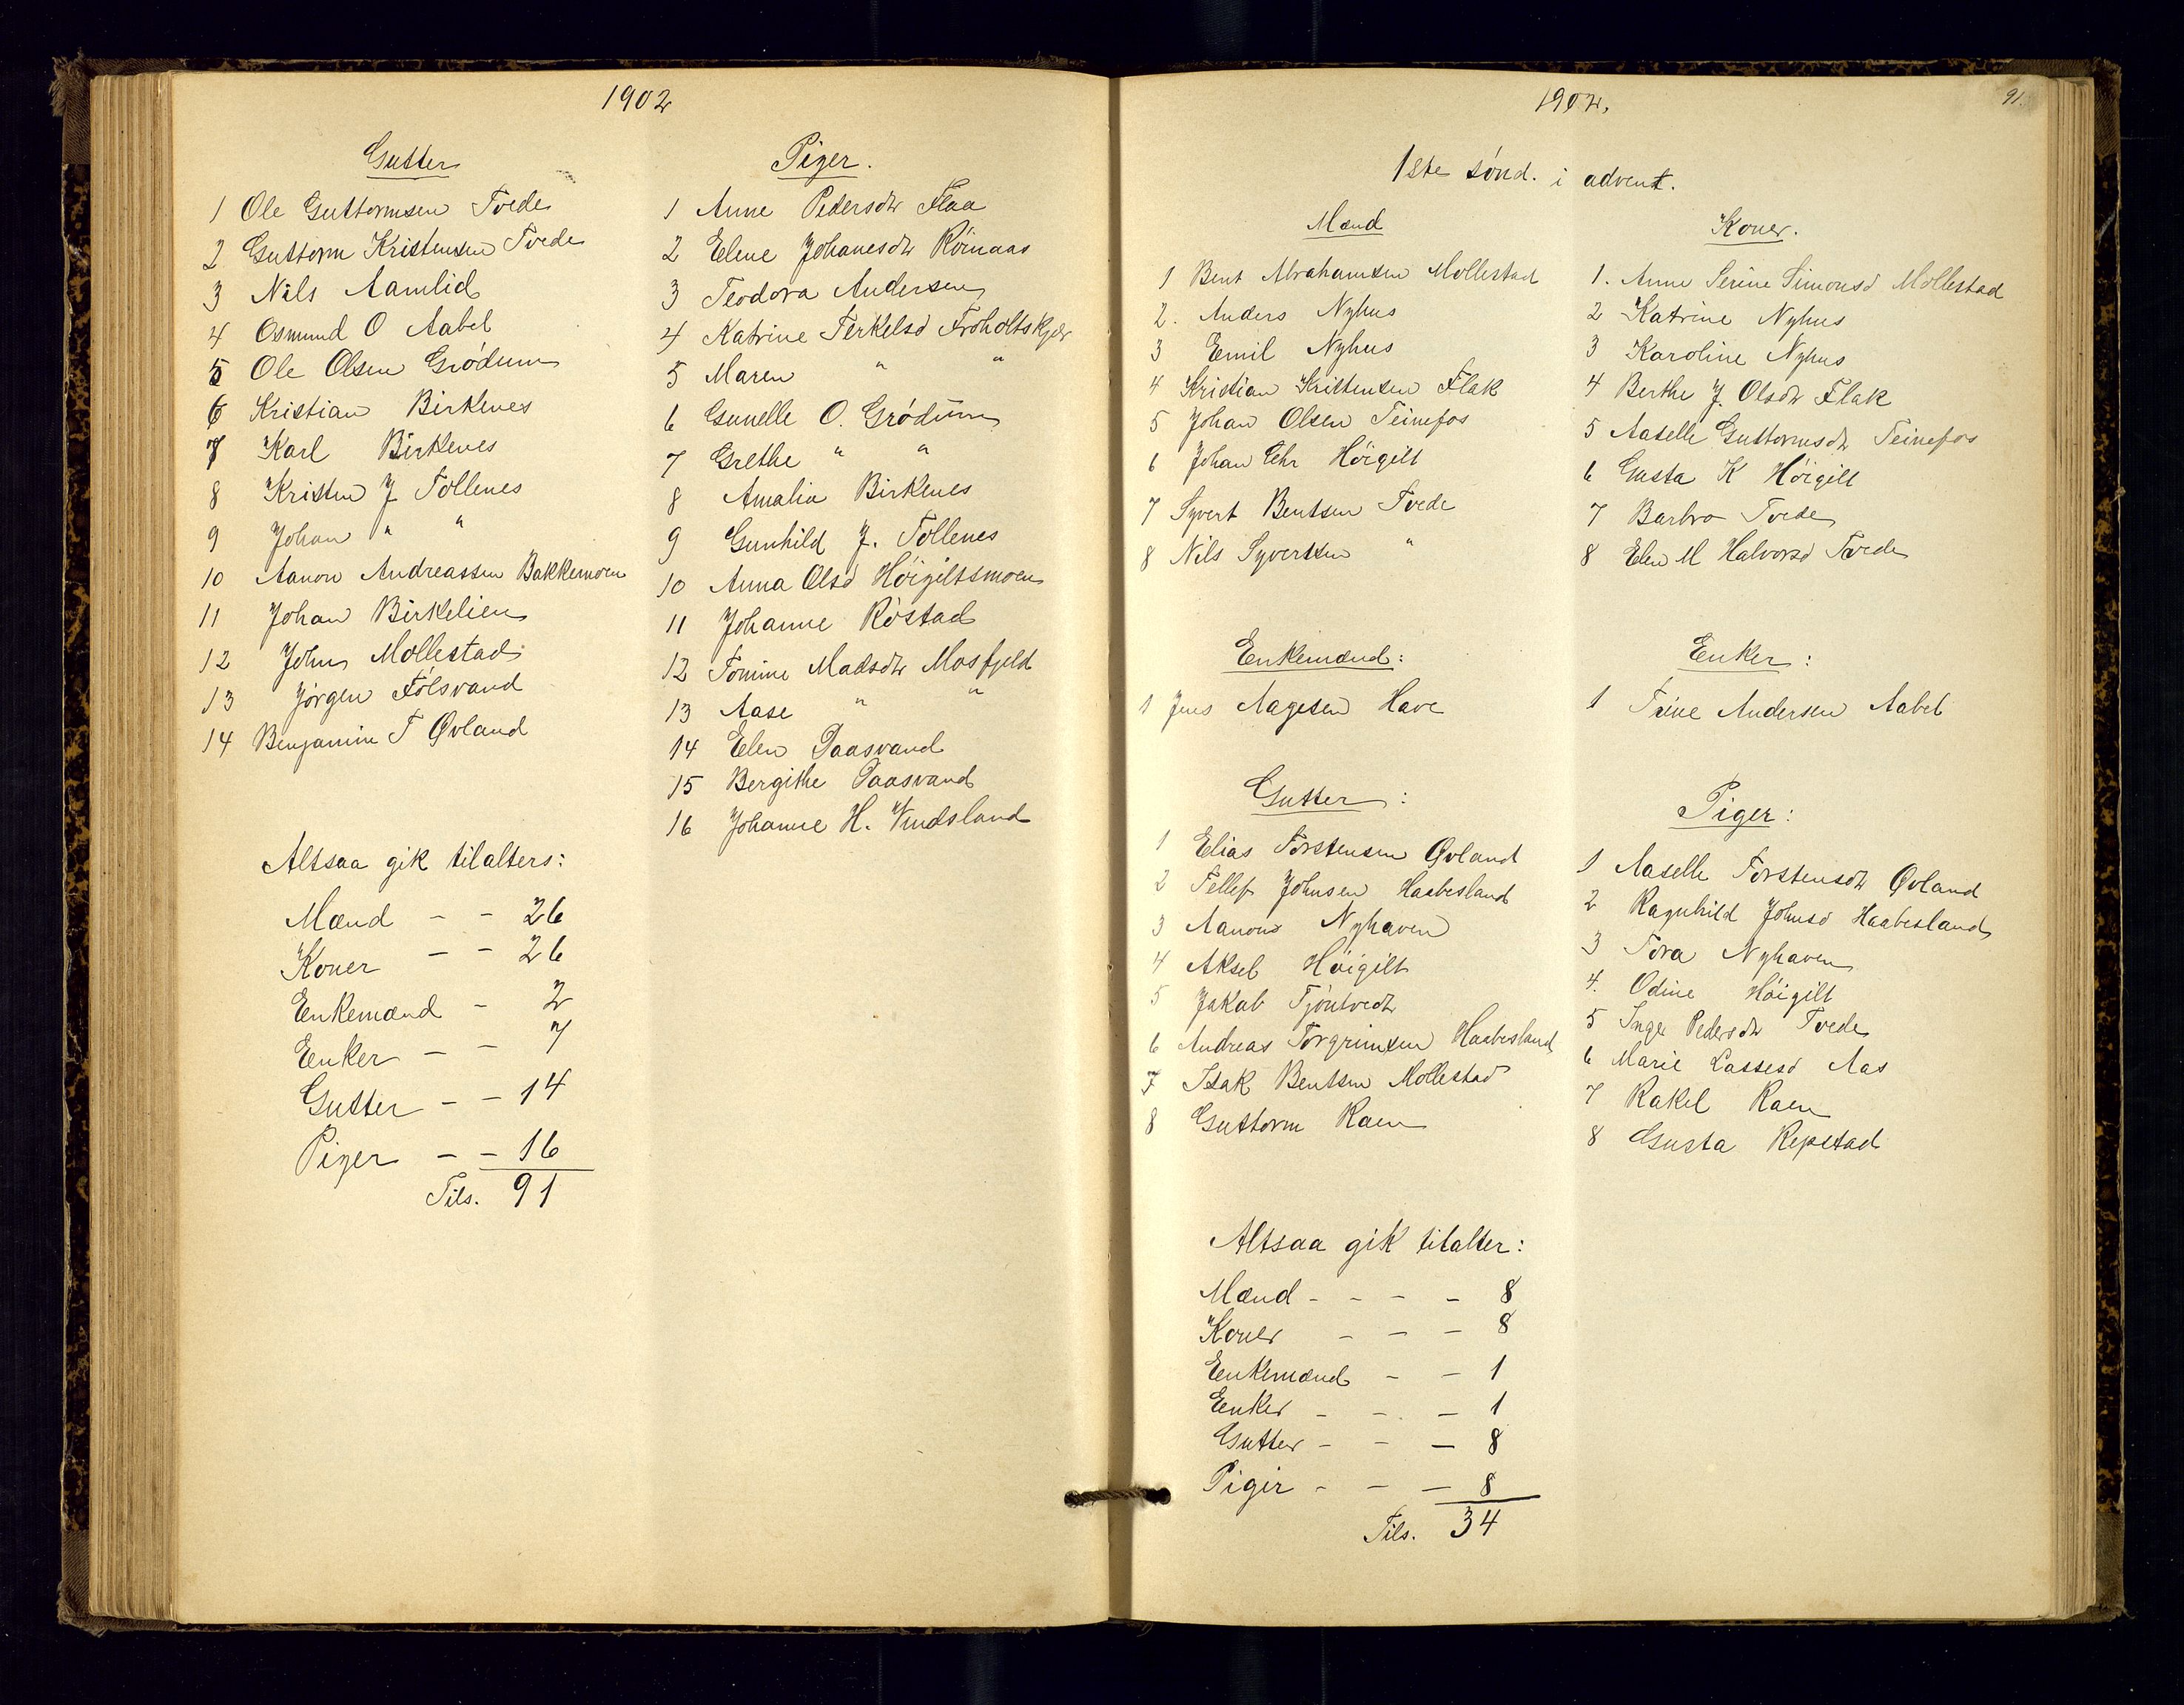 1902
Gutter
1 Ole Guttormsen Tvede
2 Guttorm Kristensen Tvede
3 Nils Aamlid
4 Osmund O Aabel
5 Ole Olsen Grödum
6 Kristian Birkenes
7 Karl Birkenes
8 Kristen J Tollenes
9 Johan " "
10 Aanon Andreassen Bakkemoen
11 Johan Birkelien
12 John Mollestad
13 Jörgen Fölsvand
14 Benjamin T Øvland
Altsaa gik tilalters:
Mænd - - 26
Koner - - 26
Enkemænd - 2
Enker - - 7
Gutter - - 14
Piger - - 16
Tils. 91
Piger.
1 Anne Pedersdtr Flaa
2 Elene Johanesdtr Röinaas
3 Teodora Andersen
4 Katrine Terkelsd Froholtskjær
5 Maren " "
6 Gunelle O. Grödum
7 Grethe " "
8 Amalia Birkenes
9 Gunhild J. Tollenes
10 Anna Olsd Höigiltsmoen
11 Johanne Röstad
12 Tomine Madsdtr Mosfjeld
13 Aase " "
14 Elen Daasvand
15 Bergithe Daasvand
16 Johanne H. Vindsland
1902.
91.
1ste sönd. i advent.
Mænd
1 Bent Abrahamsen Mollestad
2. Anders Nyhus
3 Emil Nyhus
4 Kristian Kristensen Flak
5 Johan Olsen Teinefos
6 Johan Chr Höigilt
7 Syvert Bentsen Tvede
8 Nils Syvertsen "
Koner.
1. Anne Serine Simonsd Mollestad
2 Katrine Nyhus
3 Karoline Nyhus
4 Berthe J. Olsdtr Flak
5 Aaselle Guttormsdtr Teinefos
6 Gusta K Höigilt
7 Barbro Tvede
8 Elen M Halvorsd Tvede
Enkemænd:
1 Jens Aagesen Have
Enker:
1 Trine Andersen Aabel
Gutter:
1 Elias Torstensen Øvland
2 Tellef Johnsen Haabesland
3 Aanon Nyhaven
4 Aksel Höigilt
5 Jakob Tjöntvedt
6 Andreas Torgrimsen Haabesland
7 Isak Bentsen Mollestad
8 Guttorm Raen
Piger:
1 Aaselle Torstensdtr Øvland
2 Ragnhild Johnsd Haabesland
3 Tora Nyhaven
4. Odine Höigilt
5 Inge Pedersdtr Tvede
6 Marie Lassesd Aas
7 Rakel Raen
8 Gusta Repstad
Altsaa gik tilalter:
Mænd - - - - 8
Koner - - - 8
Enkemænd - - 1
Enker - - - 1
Gutter - - - 8
Piger - - - 8
Tils. 34